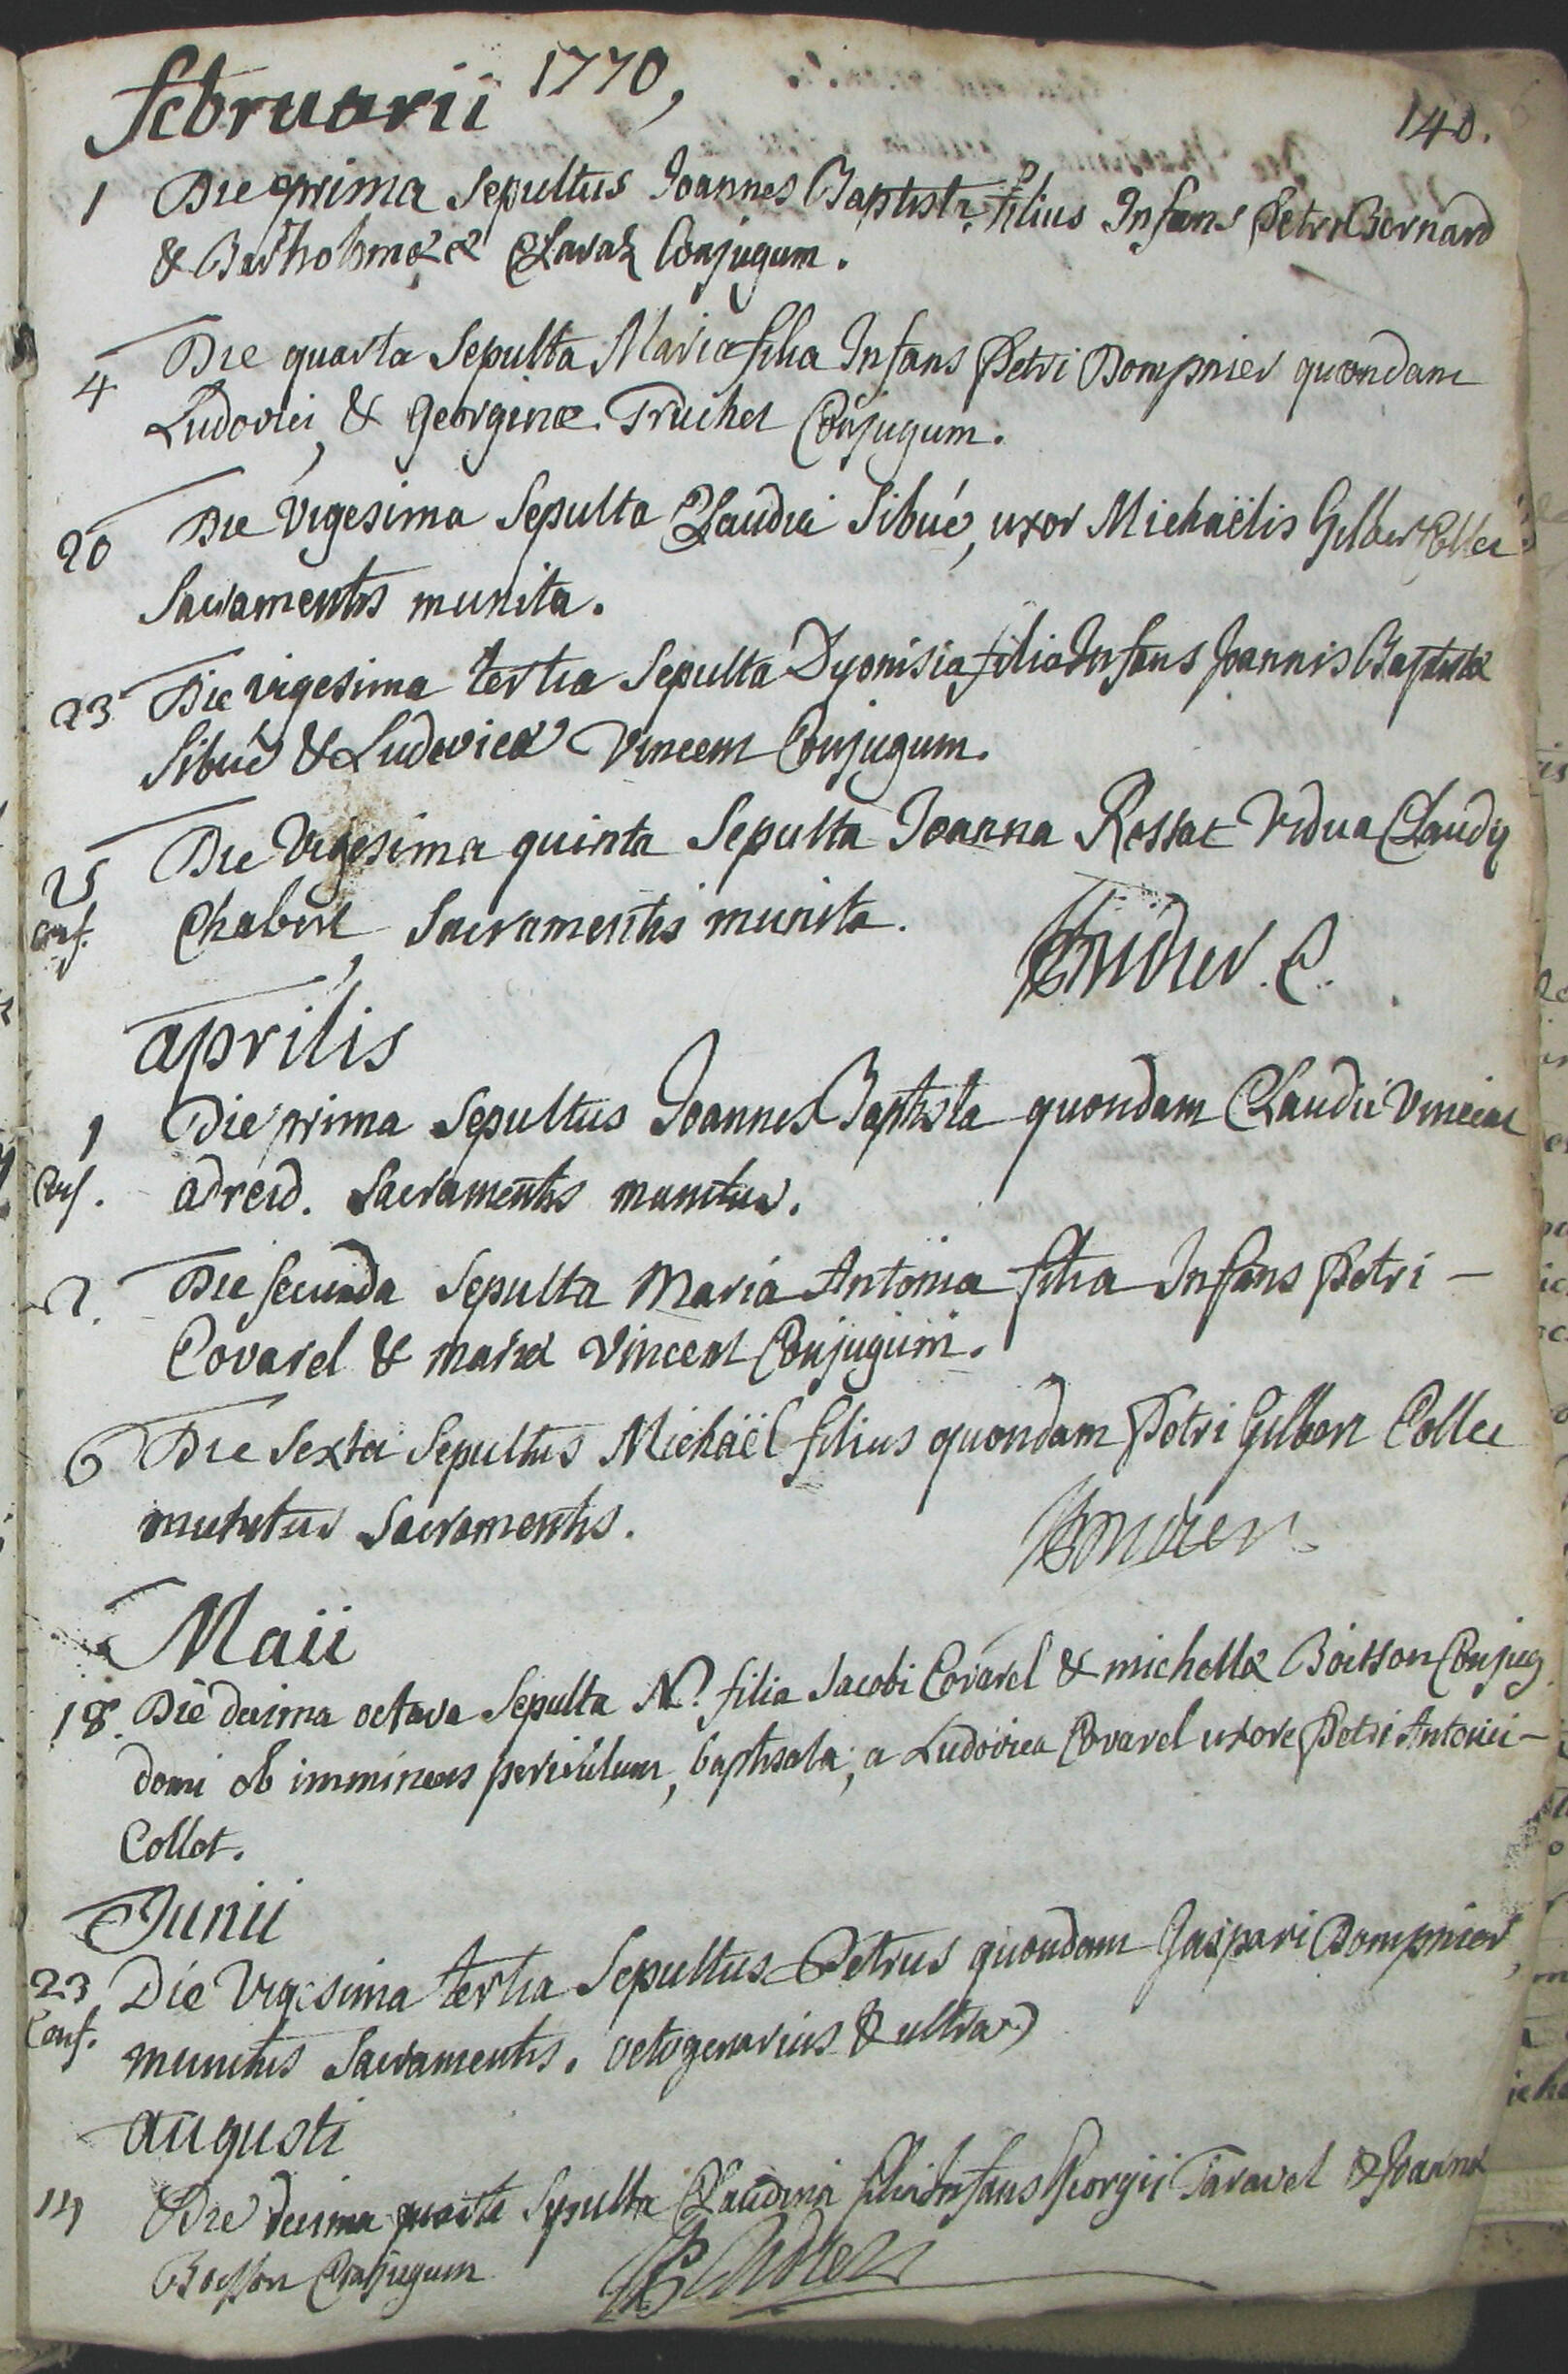 februarii 1770,
140.
1 Die prima Sepultus Joannes Baptista filius Infans Petri Bernard
& Bartholomeæ Claraz Conjugum.
4 Die quarta Sepulta Maria filia Infans Petri Dompnier quondam
Ludovici, & Georginæ Truchet Conjugum.
20 Die vigesima Sepulta Claudia Sibué, uxor Michaëlis Gilbert Collet
Sacramentis munita.
23 Die vigesima tertia Sepulta Dyonisia filia Infans Joannis Baptistæ
Sibué & Ludovicæ Vincent Conjugum.
25 Die Vigesima quinta Sepulta Joanna Rossat Vidua Claudij
conf. Chabert, Sacramentis munita.
aprilis
1 Die prima Sepultus Joannes Baptista quondam Claudii Vincent
Conf. Sacramentis munitus.
2. Die secunda Sepulta Maria Antonia filia Infans Petri -
Covarel & mariæ Vincent Conjugum.
6 Die Sexta Sepultus Michaël filius quondam Petri Gilbert Collet
munitus Sacramentis.
Maii
18. Die decima octava Sepulta N. filia Jacobi Covarel & michellæ Boisson Conjug
domi ob imminens periculum, baptisata, a Ludovica Covarel uxore Petri Antonii -
Collot.
Junii
23 Die Vigesima tertia Sepultus Petrus quondam Gaspari Dompnier,
Conf. munitus Sacramentis. octogenarius & ultra
augusti
14 Die decima quarta Sepulta Claudina filia Infans Georgii Taravel & Joannæ
Boisson Conjugum